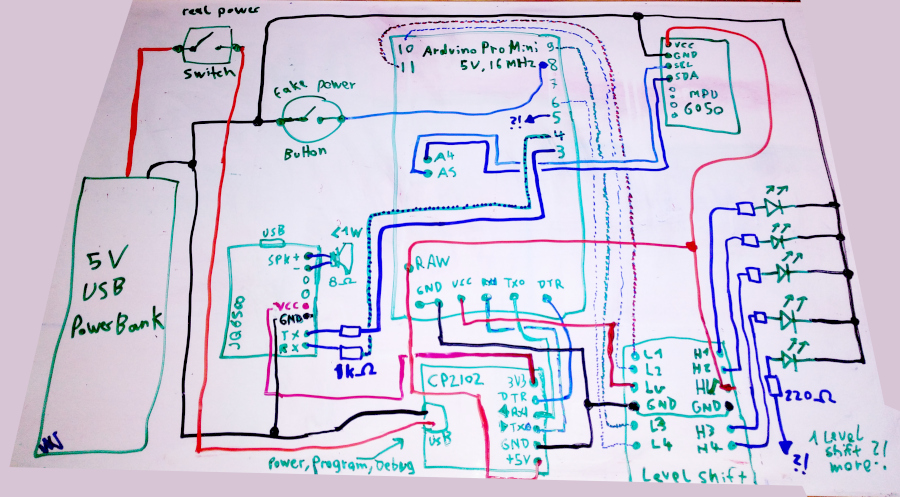 real power
Switch
Fake power
Button
5V
USB
PowerBank
10
11
Arduino Pro Mini
5V, 16 MHz
9
8
7
6
5
4
3
?!
A4
A5
RAW
GND
VCC
TXO
DTR
VCC
GND
SCL
SDA
MPU
6050
USB
<1W
8Ω
SPK+
-
VCC
GND
TX
RX
JQ6500
1kΩ
CP2102
USB
3V3
DTR
RXI
TXO
GND
+5V
Power, Program, Debug
L1
L2
LV
GND
L3
L4
H1
H2
HV
GND
H3
H4
Level shift
220Ω
?!
1 Level
shift ?!
more..